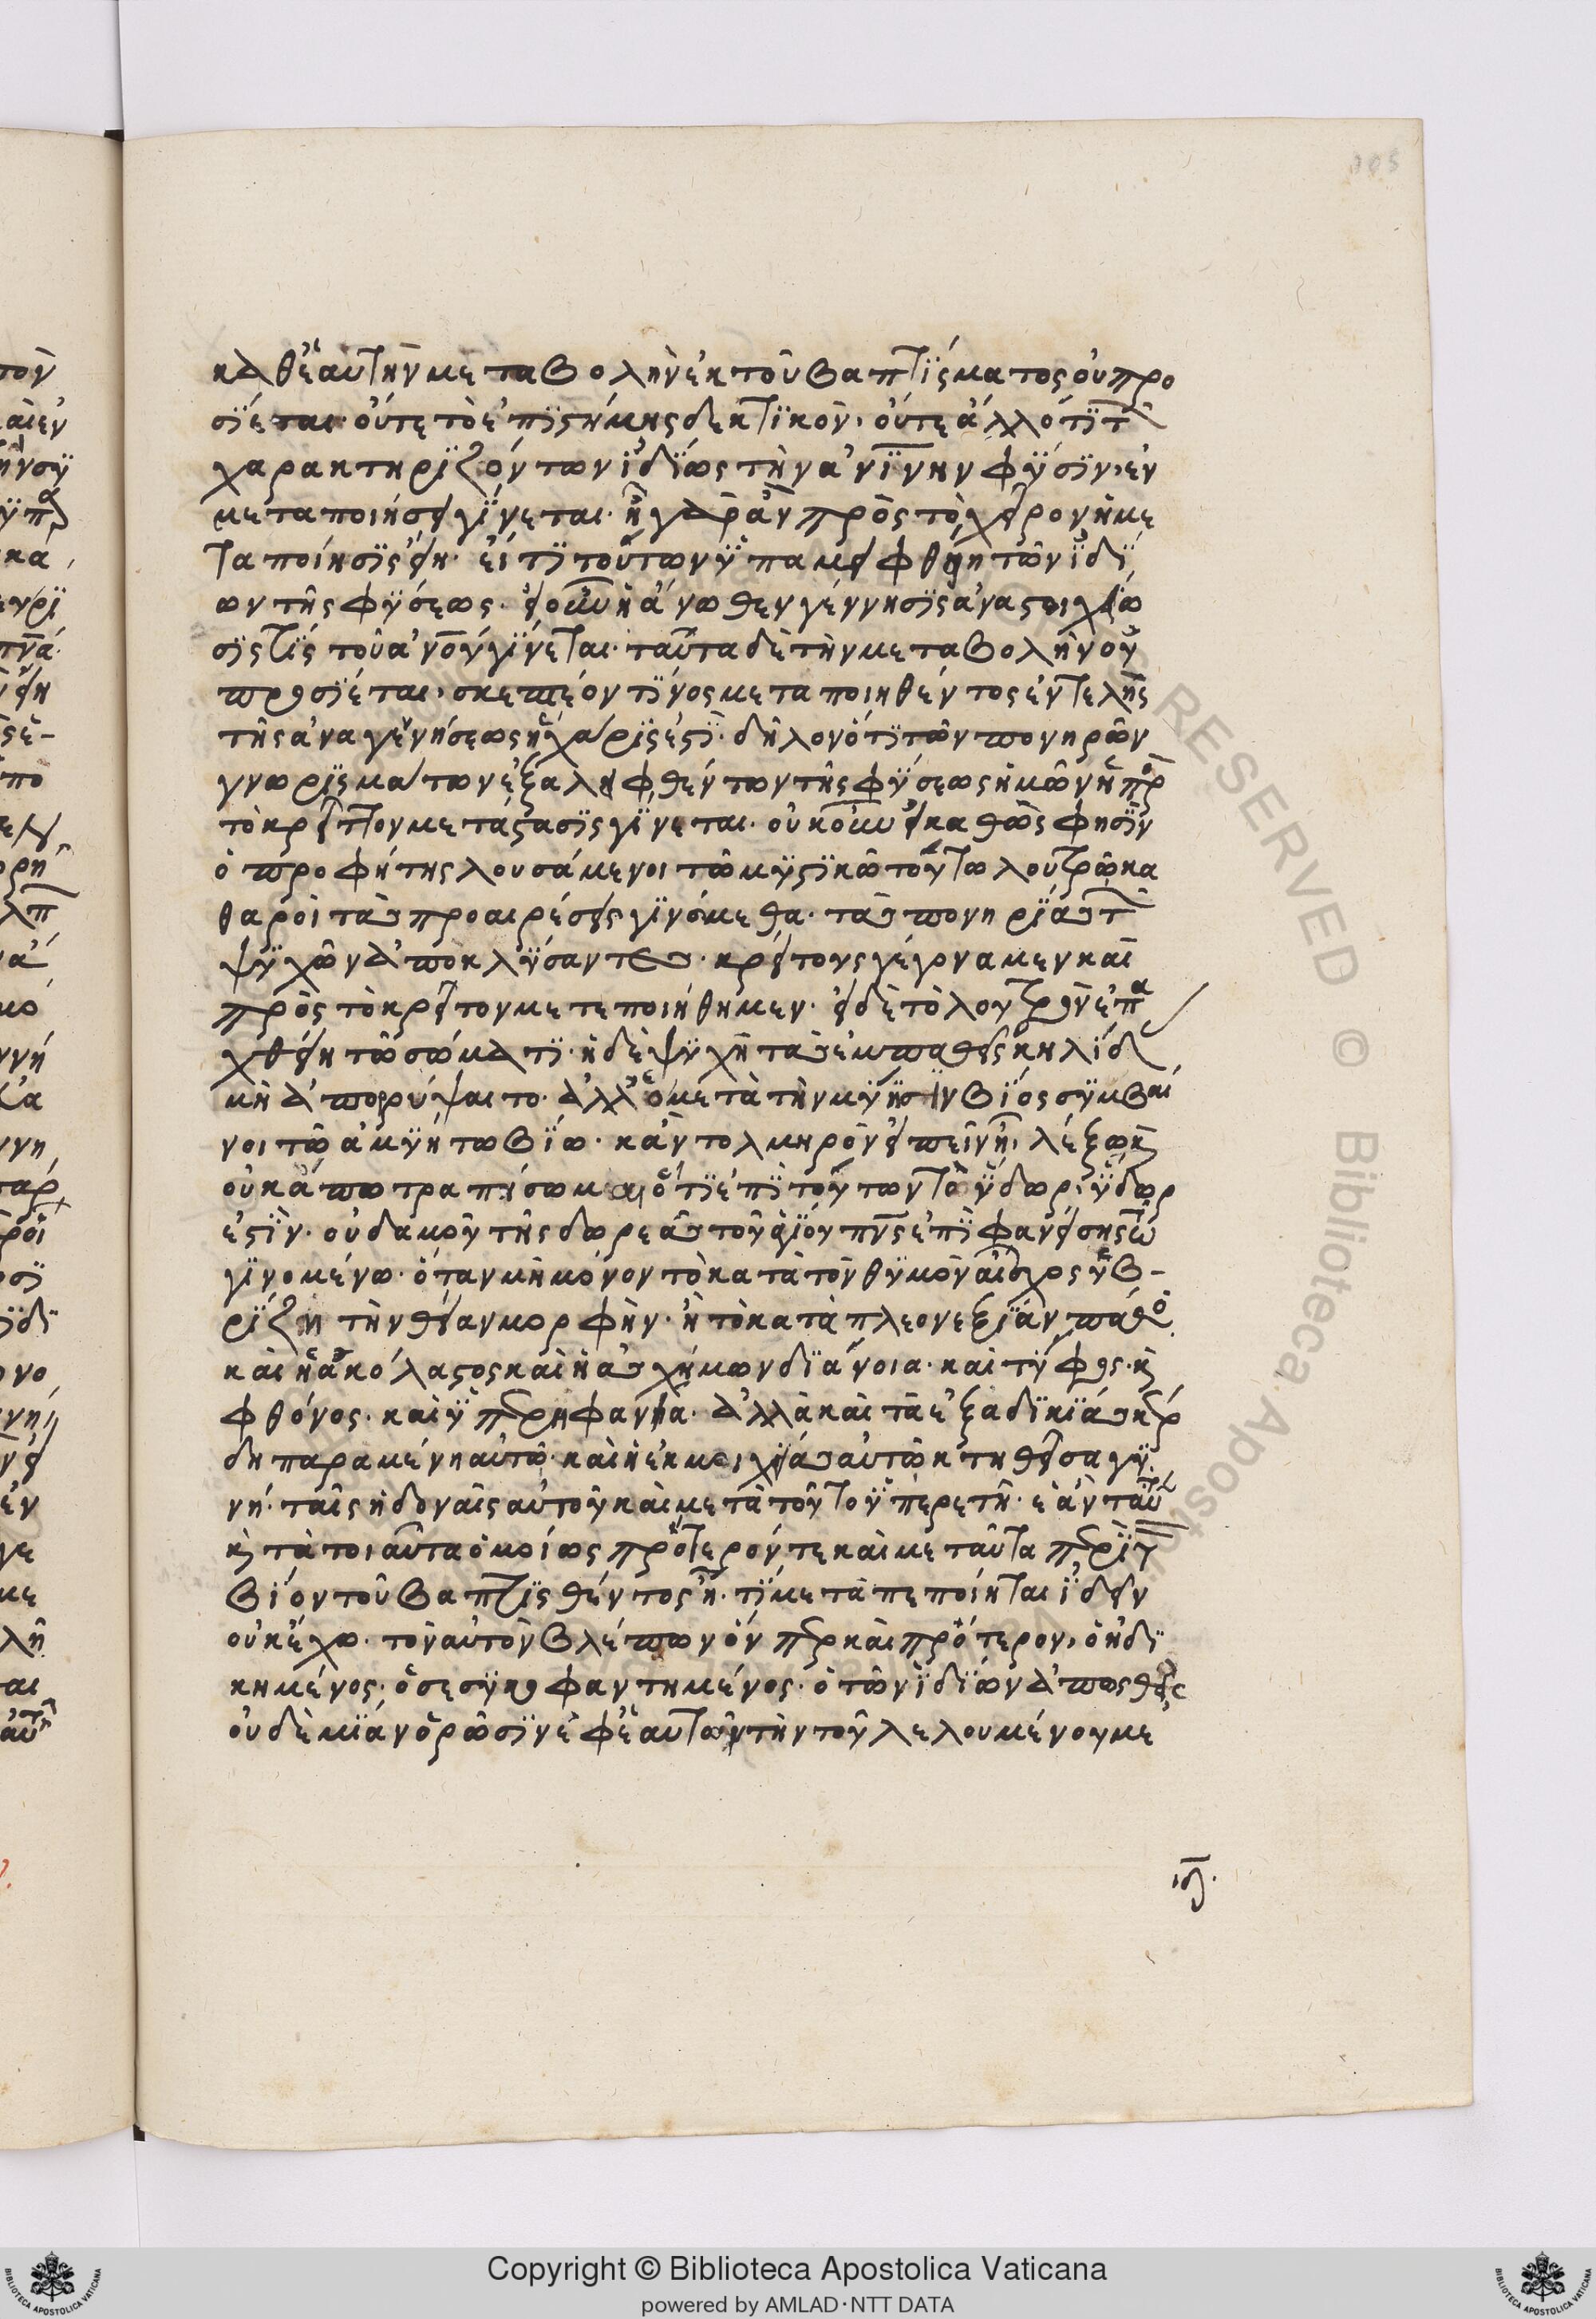 καθ' ἑαυτὴν μεταβολὴν ἐκ τοῦ βαπτίσματος οὐ προ
σίεται· οὔτε τὸ ἐπιστήμης δεκτικὸν, οὔτε ἄλλό τι τ
χαρακτηριζόντων ἰδίως τὴν ἀνίνην φύσιν, ἐν
μεταποιήσει γίνεται· ἢ γὰρ ἂν πρὸς τὸ χεῖρον ἡ με
ταποίησις εἴη· εἴ τι τούτων ὑπαμειφθείη τῶν ἰδί
ων τῆς φύσεως· εἰ οὖν ἡ ἄνωθεν γέννησις ἀναστοιχείω
σίς τίς τοῦ ἀνου γίνεται· ταῦτα δὲ τὴν μεταβολὴν οὐ
προσίεται, σκεπτέον τίνος μεταποιηθέντος ἐντελὴς
τῆς ἀναγεννήσεως ἡ χάρις ἐστὶ· δηλονότι τῶν πονηρῶν
γνωρισμάτων ἐξαλειφθέντων τῆς φύσεως ἡμῶν ἡ πρὸ
τὸ κρεῖττον μετάστασις γίνεται· οὐκοῦν εἰ καθὼς φησὶν
ὁ προφήτης λουσάμενοι τῶ μυστικῶ τούτω λουτρῶ κα
θαροὶ τὰς προαιρέσεις γινόμεθα· τὰς πονηρίας τ
ψυχῶν ἀποκλύσαντες· κρείτους γέγοναμεν καὶ
πρὸς τὸ κρεῖτον μετεποιήθημεν· εἰ δὲ τὸ λουτρὸν ἐπα
χθείη τῶ σώματι· ἡ δὲ ψυχὴ τὰς ἐμπαθεῖς κηλίδ
μὴ ἀπορύψαιτο· ἀλλ' ὁ μετὰ τὴν μύησιν βίος συμβαί
νοι τῶ ἀμυήτω βίω· κἂν τολμηρὸν εἰπεῖν ἦ, λέξω κ
οὐκ ἀποτραπήσωμαι ὅτι ἐπὶ τούτων τὸ ὕδωρ, ὕδωρ
ἐστὶν· οὐδαμοῦ τῆς δωρεᾶς τοῦ ἁγίου πνς ἐπιφανείσης τῶ
γινομένω· ὅταν μὴ μόνον τὸ κατὰ τὸν θυμὸν αἶσχος ὑβ-
ρίζη τὴν θείαν μορφὴν· ἢ τὸ κατὰ πλεονεξίαν πάθο
καὶ ἡ ἀκόλαστος καὶ ἡ ἀσχήμων διάνοια· καὶ τύφος· κ
φθόνος· καὶ ὑπερηφανεία· ἀλλὰ καὶ τὰ ἐξ ἀδικίας κέρ
δη παραμένη αὐτῶ· καὶ ἡ ἐκ μοιχείας αὐτῶ κτηθεῖσα γυ
νή· ταῖς ἡδοναῖς αὐτοῦ καὶ μετὰ τοῦτο ὑπερετῆ· ἐὰν ταῦτ
κ τὰ τοιαῦτα ὁμοίως πρότερόν τε καὶ μεταῦτα περὶ τ
βίον τοῦ βαπτισθέντος ἦ· τί μεταπεποίηται ἰδεῖν
οὐκ ἔχω· τὸν αὐτὸν βλέπων ὅν περ καὶ πρότερον, ὁ ἠδι
κημένος· ὁ σεσυκοφαντημένος· ὁ τῶν ἰδίων ἀπωσθεὶς
οὐδὲ μίαν ὁρῶσιν ἐφ' ἑαυτῶν τὴν τοῦ λελουμένου με
ιδ.
Copyright © Biblioteca Apostolica Vaticana
powered by AMLAD·NTT DATA